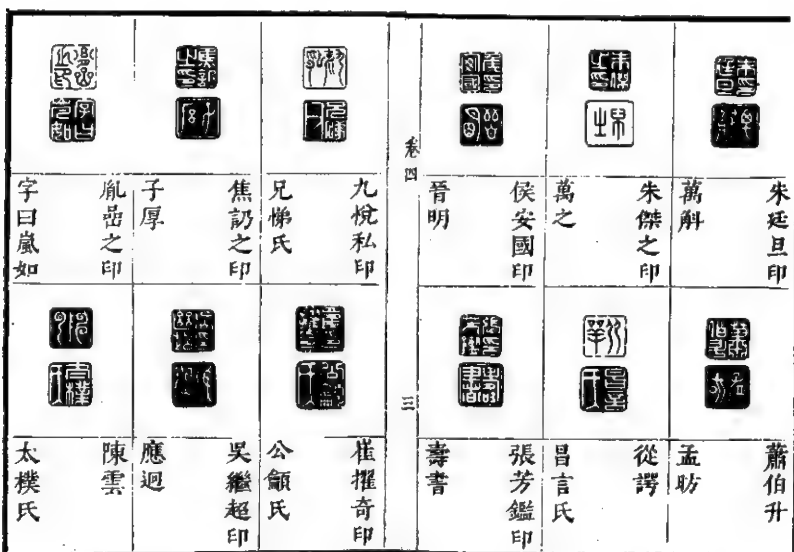 朱廷旦印
萬斛
朱傑之印
萬之
侯安國印
晉明
蕭伯升
孟昉
從諤
昌言氏
張芳鑑印
壽書
卷四
三
九悅私印
兄悌氏
焦訒之印
子厚
胤嵒之印
字曰嵐如
崔擢奇印
公龥氏
吳繼超印
應迥
陳雲
太樸氏